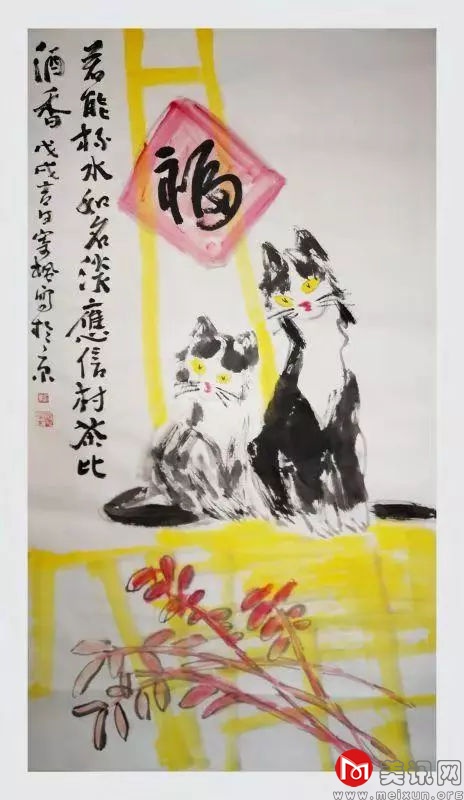 若能杯水如名淡應信村茶比
酒香 戊戌吉日寫於京
福
美讯网
www.meixun.org